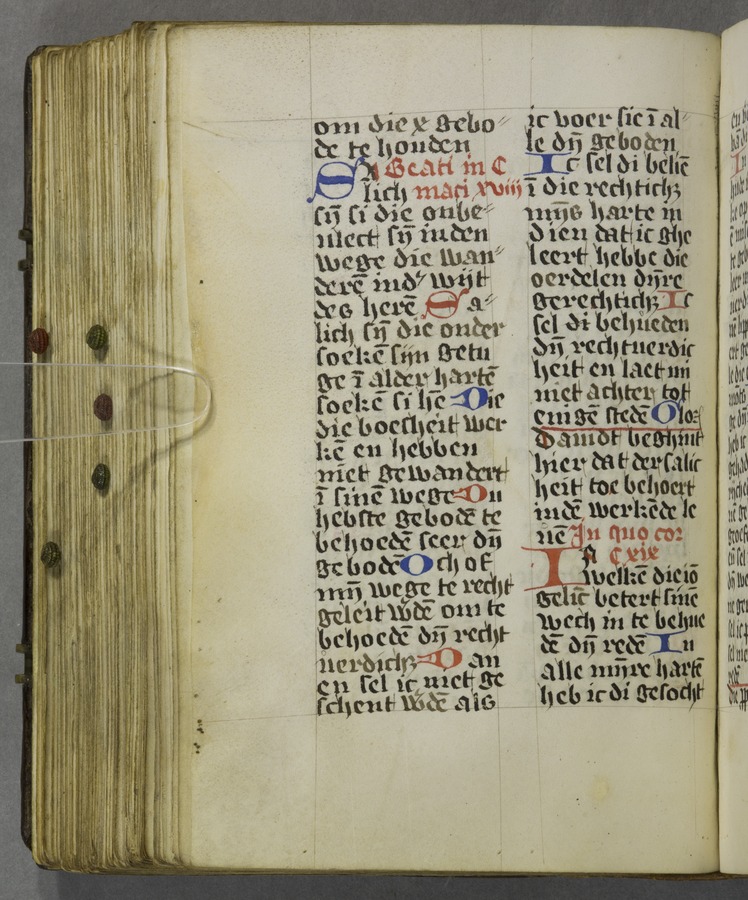 om die x gebo⸗
de te houden
SA Beati in C
lich maci xviij
sij̄ si die onbe⸗
vlect sij̄ in den
wege die wan⸗
derē ind' wijt
des herē Sa⸗
lich sij̄ die onder
soekē sijn getu
ge ī alder hartē
soekē si hē Die
die boesheit wer
kē en hebben
niet gewandert
ī sinē wege Du
hebste gebodē te
behoedē seer dij̄
gebodē Och of
mij̄ wege te recht
geleit w̄dē om te
behoedē dij̄ recht
uerdichꝫ Dan
en sel ic niet ge
schent w̄dē als
ic voer sie ī al⸗
le dij̄ geboden
Ic sel di beliē
ī die rechtichꝫ
mijs harte in
dien dat ic ghe
leert hebbe die
oerdelen dijre
gerechtichꝫ Ic
sel di behueden
dij̄ rechtuerdic
heit en laet mi
niet achter tot
enigē stedē Glo⸗
Dauidt beghint
hier dat der salic
heit toe behoert
indē werkēde le
uē In quo cor
IN C xix
welkē die iō
gelic betert sinē
wech in te behue
dē dij̄ redē In
alle mijre hartē
heb ic di gesocht